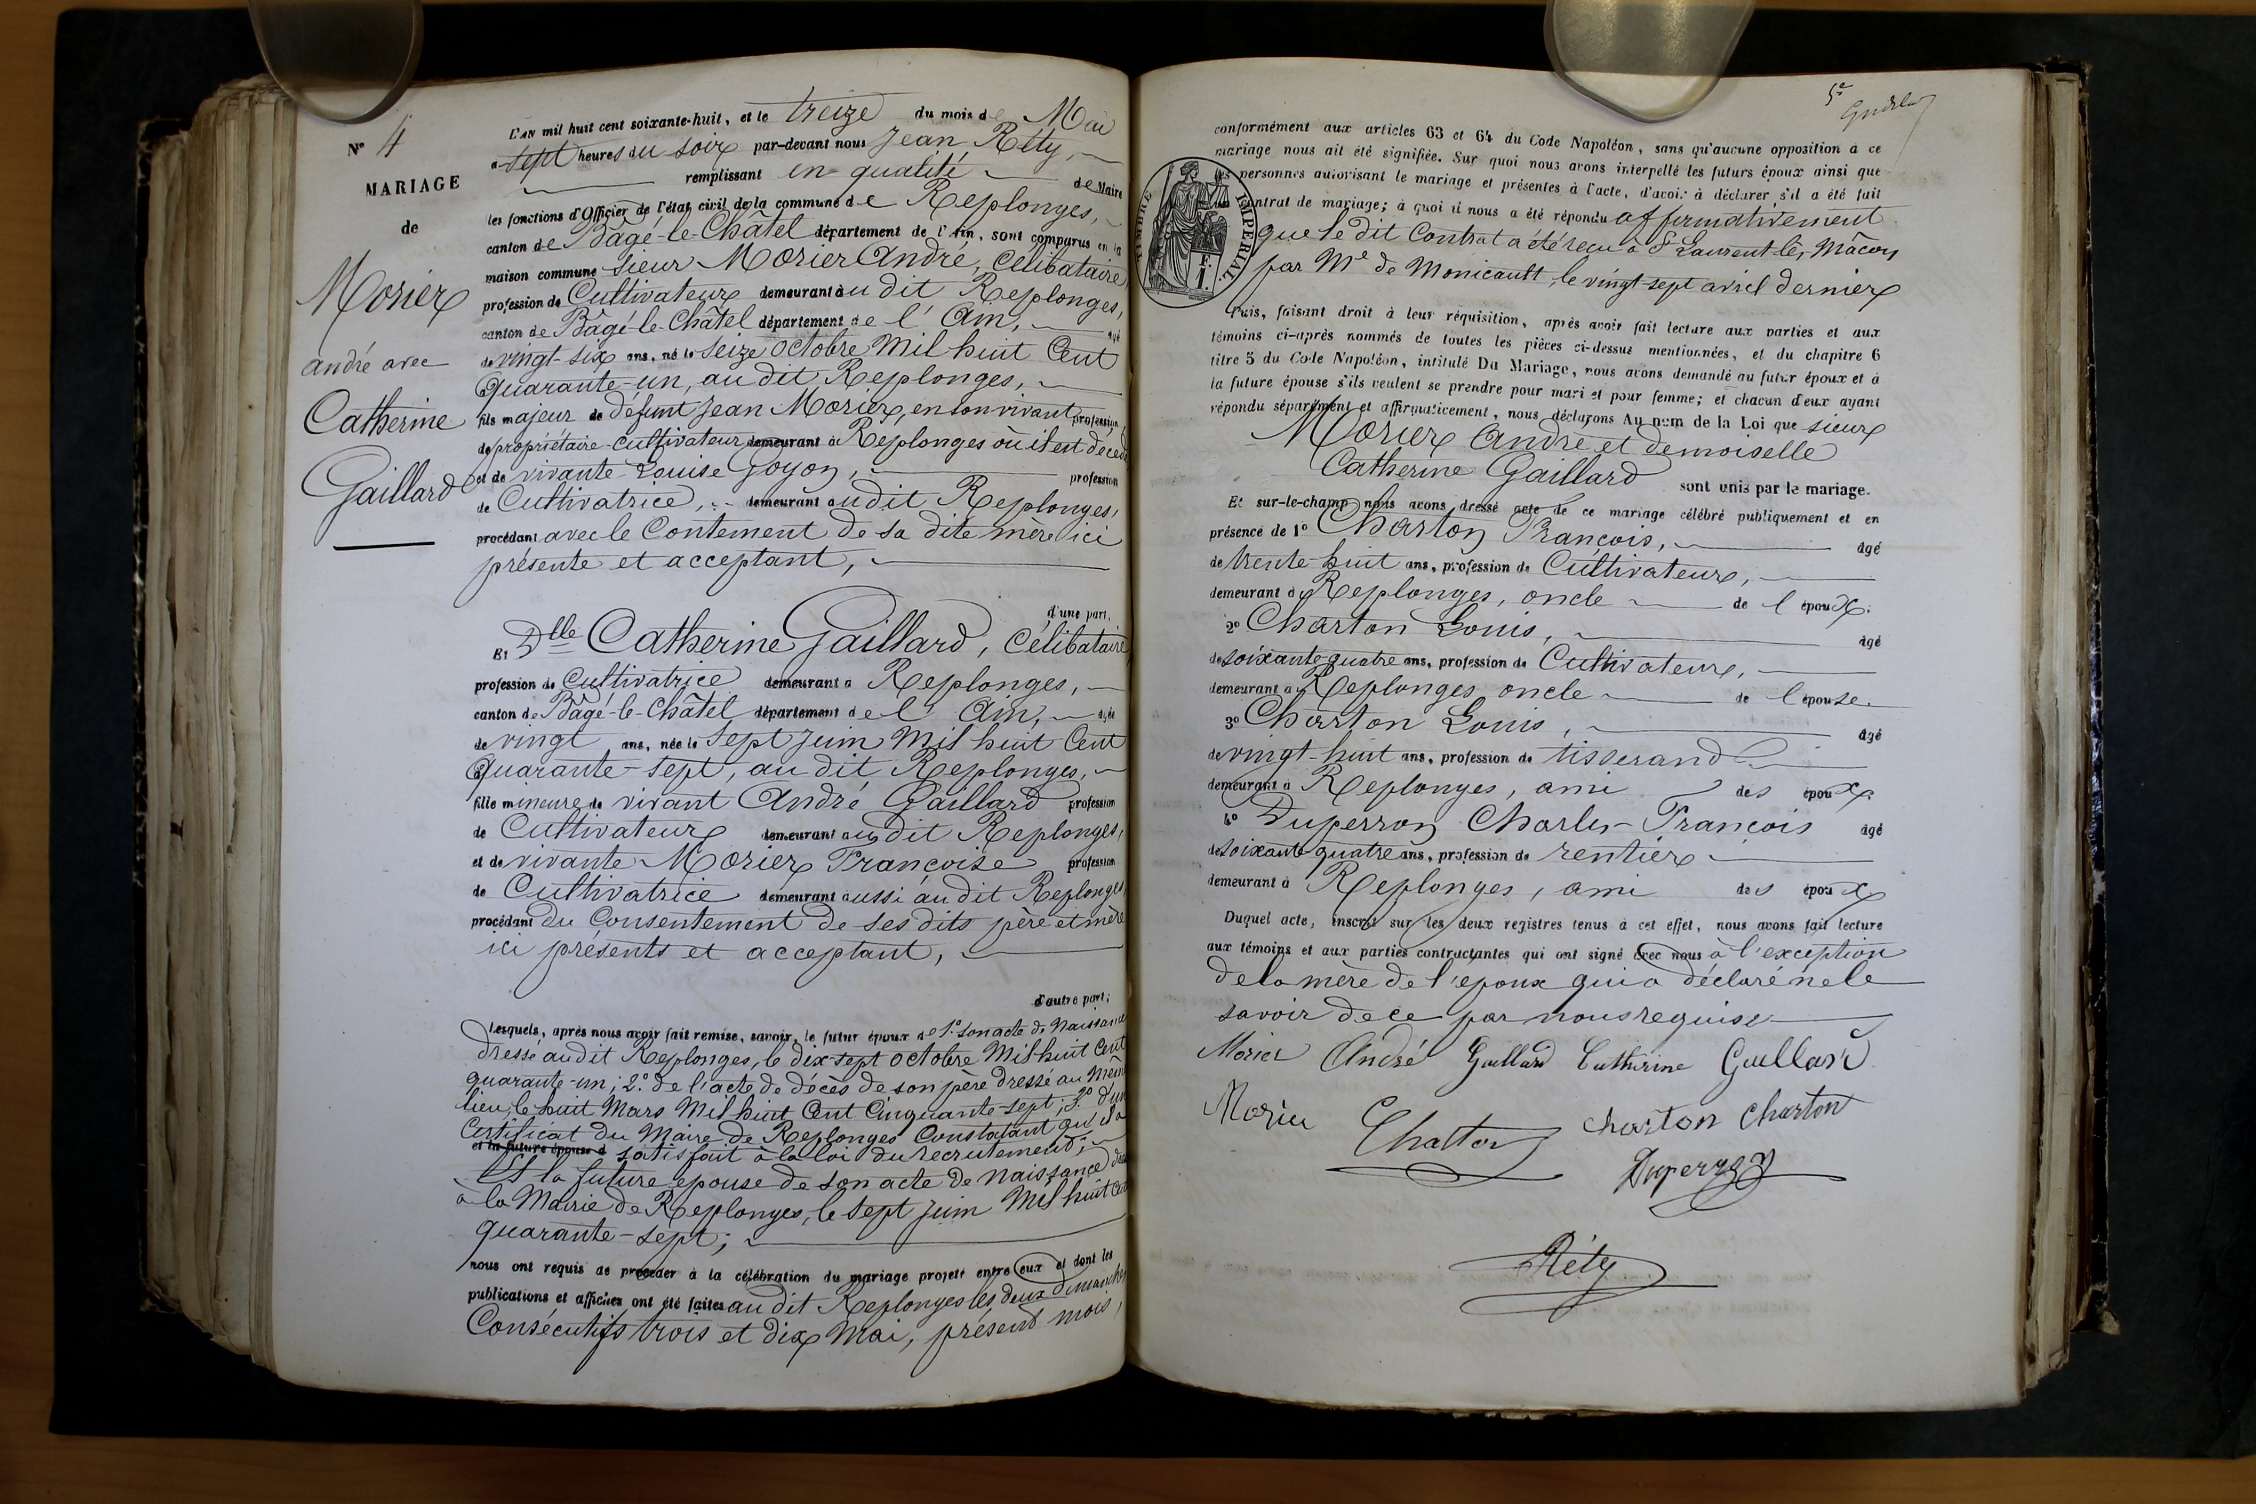 N° 4
MARIAGE
de
Morier
andré avec
Catherine
Gaillard
L'an mil huit cent soixante-huit, et le treize du mois de Mai
a sept heures du soir par-devant nous Jean Réty,
remplissant en qualité de Maire
les fonctions d'Officier de l'état civil de la commune de Replonges,
canton de Bâgé-le-Châtel département de l'Ain, sont comparus en la
maison commune sieur Morier André, Célibataire
profession de Cultivateur demeurant audit Replonges,
canton de Bâgé-le-Châtel département de l'Ain, âgé
de vingt-six ans, né le seize octobre Mil huit Cent
Quarante-un, au dit Replonges,
fils majeur de défunt Jean Morier, en son vivant profession
de propriétaire-cultivateur demeurant à Replonges où il est décédé
et de vivante Louise Goyon, profession
de Cultivatrice, demeurant audit Replonges,
procédant avec le Contement de sa dite mère ici
présente et acceptant,
d'une part,
Et Dlle Catherine Gaillard, Célibataire
profession de Cultivatrice demeurant à Replonges,
canton de Bâgé-le-Châtel département de l'Ain, âgée
de vingt ans, née le sept Juin Mil huit Cent
Quarante-sept, au dit Replonges,
fille mineure de vivant André Gaillard profession
de Cultivateur demeurant audit Replonges,
et de vivante Morier Françoise profession
de Cultivatrice demeurant aussi audit Replonges
procédant du Consentement de ses dits père et mère
ici présents et acceptant,
d'autre part;
Lesquels, après nous avoir fait remise, savoir, le futur époux de 1.° son acte de Naissance
dressé audit Replonges, le dix-sept octobre Mil huit Cent
quarante-un; 2.° de l'acte de décès de son père dressé au même
lieu, le huit Mars Mil huit Cent Cinquante-sept; 3.° d'un
Certificat du Maire de Replonges Constatant qu'il a
et la future épouse d satisfait à la loi du recrutement;
Et la future epouse de son acte de Naissance
à la Mairie de Replonges, le sept Juin Mil huit Cent
quarante-sept;
nous ont requis de procéder à la célébration du mariage projeté entre eux et dont les
publications et affiches ont été faites au dit Replonges les deux dimanches
Consécutifs trois et dix Mai, présent mois,
5e
conformément aux articles 63 et 64 du Code Napoléon, sans qu'aucune opposition à ce
mariage nous ait été signifiée. Sur quoi nous avons interpellé les futurs époux ainsi que
les personnes autorisant le mariage et présentes à l'acte, d'avoir à déclarer s'il a été fait
contrat de mariage; à quoi il nous a été répondu affirmativement
que le dit Contrat a été reçu à St Laurent-lès-Mâcon
par Me de Monicault, le vingt-sept avril dernier
TIMBRE IMPÉRIAL
Puis, faisant droit à leur réquisition, après avoir fait lecture aux parties et aux
témoins ci-après nommés de toutes les pièces ci-dessus mentionnées, et du chapitre 6
titre 5 du Code Napoléon, intitulé Du Mariage, nous avons demandé au futur époux et à
la future épouse s'ils veulent se prendre pour mari et pour femme; et chacun d'eux ayant
répondu séparément et affirmativement, nous déclarons Au nom de la Loi que sieur
Morier André et demoiselle
Catherine Gaillard sont unis par le mariage.
Et sur-le-champ nous avons dressé acte de ce mariage célébré publiquement et en
présence de 1° Charton François, âgé
de trente-huit ans, profession de Cultivateur,
demeurant à Replonges, oncle de l'époux.
2° Charton Louis, âgé
de soixante-quatre ans, profession de Cultivateur,
demeurant à Replonges oncle de l'épouse.
3° Charton Louis, âgé
de vingt-huit ans, profession de tisserand
demeurant à Replonges, ami des époux.
4° Duperron Charles-François âgé
de soixante quatre ans, profession de rentier
demeurant à Replonges, ami des époux
Duquel acte, inscrit sur les deux registres tenus à cet effet, nous avons fait lecture
aux témoins et aux parties contractantes qui ont signé avec nous à l'exception
de la mère de l'epoux qui a déclaré ne le
savoir de ce par nous requise
Morier André Gaillard Catherine Gaillard
Morier Charton Charton Charton
Duperron
Réty